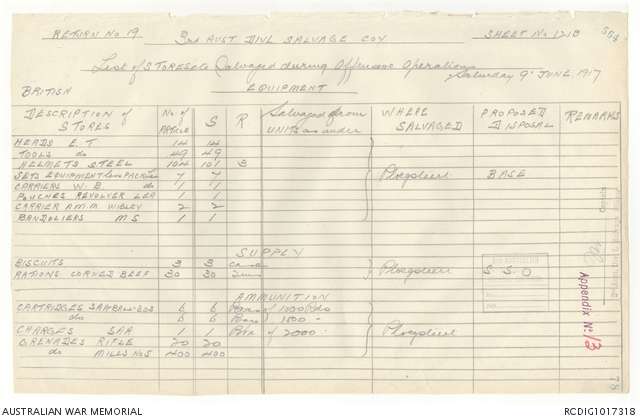 RETURN No 19 3rd AUST DIVL SALVAGE COY SHEET No 1218
List of STORES etc Salvaged during Offensive Operations
Saturday 9th JUNE 1917
BRITISH EQUIPMENT
DESCRIPTION of STORES No of Article S R Salvaged from UNITS as under WHERE SALVAGED PROPOSED DISPOSAL REMARKS
HEADS E.T. 14 14
TOOLS do 49 49
HELMETS STEEL 104 101 3
SETS EQUIPMENT less PACKS 7 7 Ploegsteert BASE
CARRIERS W.B. do 1 1
POUCHES REVOLVER LEA 1 1
CARRIER AMM WEBLEY 2 2
BANDOLIERS MS 1 1
SUPPLY
BISCUITS 3 3
RATIONS CORNED BEEF 30 30 Ploegsteert S S O
AMMUNITION
CARTRIDGES SAA 6 6 Boxes of 1000 Rds
do 6 6 1500
CHARGES SAA 1 1 Box of 2000 Ploegsteert
GRENADES RIFLE 20 20
do MILLS No 5 400 400
Appendix No 13
78
AUSTRALIAN WAR MEMORIAL
RCDIG1017318